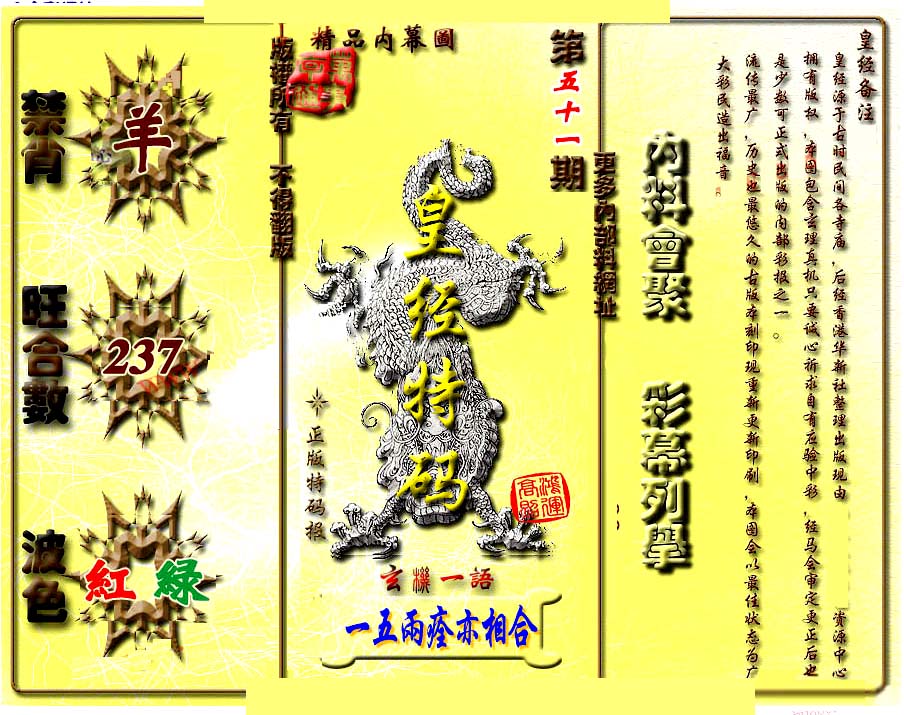 精品內幕圖
第五十一期
版權所有 不得翻版
更多內部料網址
禁肖
羊
旺合數
237
波色
紅 綠
皇经特码
正版特码报
鴻運高照
玄機一語
一五兩痊亦相合
內料會聚 彩幕列舉
皇经备注
皇经源于古时民间各寺庙，后经香港华新社整理出版现由 资源中心
拥有版权，本图包含玄理真机只要诚心祈求自有应验中彩，经马会审定更正后也
是少数可正式出版的内部彩报之一。
流传最广，历史也最悠久的古版本刻印现重新更新印刷，本图会以最佳状态为广
大彩民造出福音